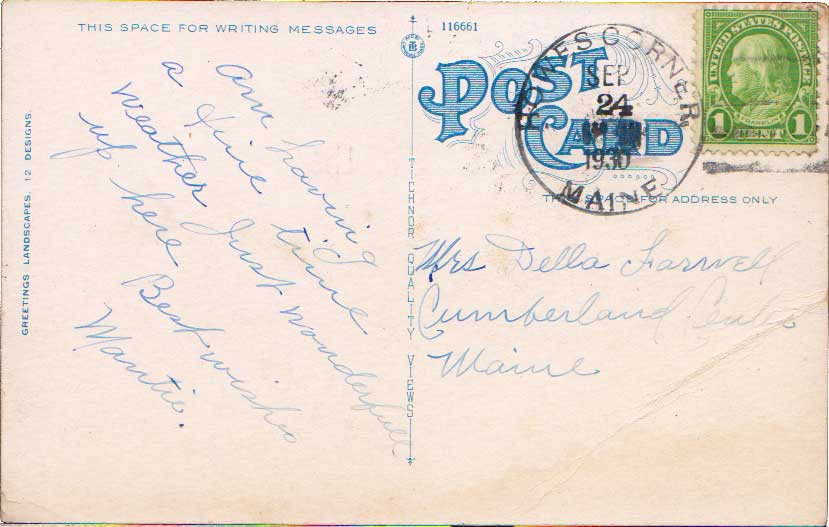 THIS SPACE FOR WRITING MESSAGES
116661
POST
CARD
THIS SPACE FOR ADDRESS ONLY
GREETINGS LANDSCAPES. 12 DESIGNS.
TICHNOR QUALITY VIEWS
MAINE
SEP
24
1930
UNITED STATES POSTAGE
FRANKLIN
1 CENT 1
am having
a fine time
weather Just wonderfull
up here Best wishes
Mantie.
Mrs Della Farwell
Cumberland Center
Maine